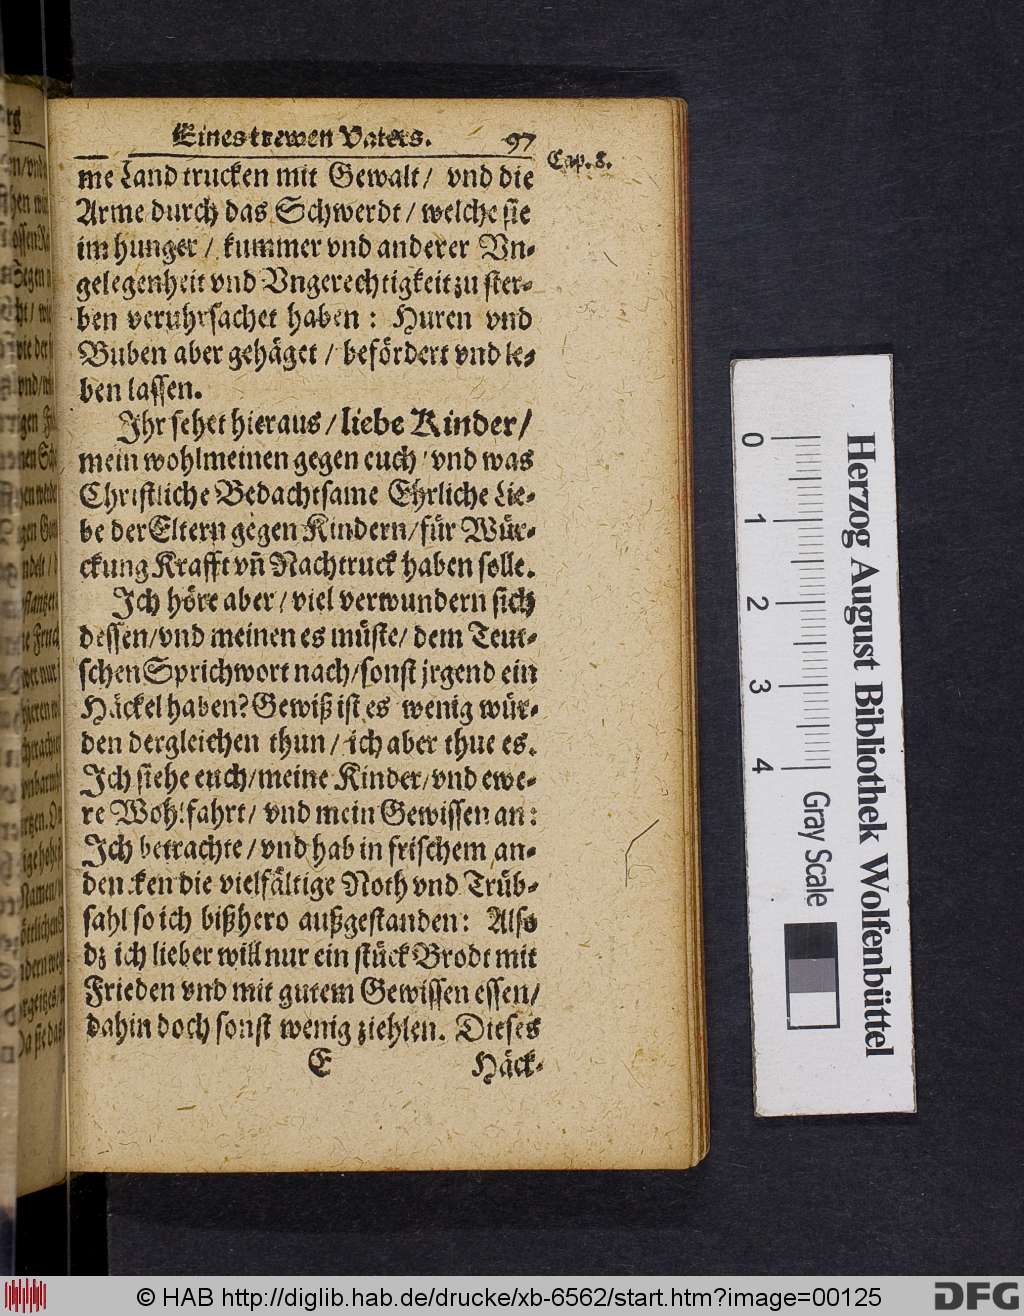 Eines trewen Vaters. 97
Cap. 8.
me Land trucken mit Gewalt / vnd die
Arme durch das Schwerdt / welche sie
im hunger / kummer vnd anderer Vn-
gelegenheit vnd Vngerechtigkeit zu ster-
ben veruhrsachet haben : Huren vnd
Buben aber gehäget / befördert vnd le-
ben lassen.
Ihr sehet hieraus / liebe Kinder /
mein wohlmeinen gegen euch / vnd was
Christliche Bedachtsame Ehrliche Lie-
be der Eltern gegen Kindern / für Wür-
ckung Krafft vñ Nachtruck haben solle.
Ich höre aber / viel verwundern sich
dessen / vnd meinen es müste / dem Teut-
schen Sprichwort nach / sonst jrgend ein
Häckel haben? Gewiß ist es wenig wür-
den dergleichen thun / ich aber thue es.
Ich siehe euch / meine Kinder / vnd ewe-
re Wohlfahrt / vnd mein Gewissen an :
Ich betrachte / vnd hab in frischem an-
dencken die vielfältige Noth vnd Trüb-
sahl so ich bißhero außgestanden : Also
dz ich lieber will nur ein stück Brodt mit
Frieden vnd mit gutem Gewissen essen /
dahin doch sonst wenig ziehlen. Dieses
E Häck-
0 1 2 3 4 Gray Scale
Herzog August Bibliothek Wolfenbüttel
© HAB http://diglib.hab.de/drucke/xb-6562/start.htm?image=00125
DFG